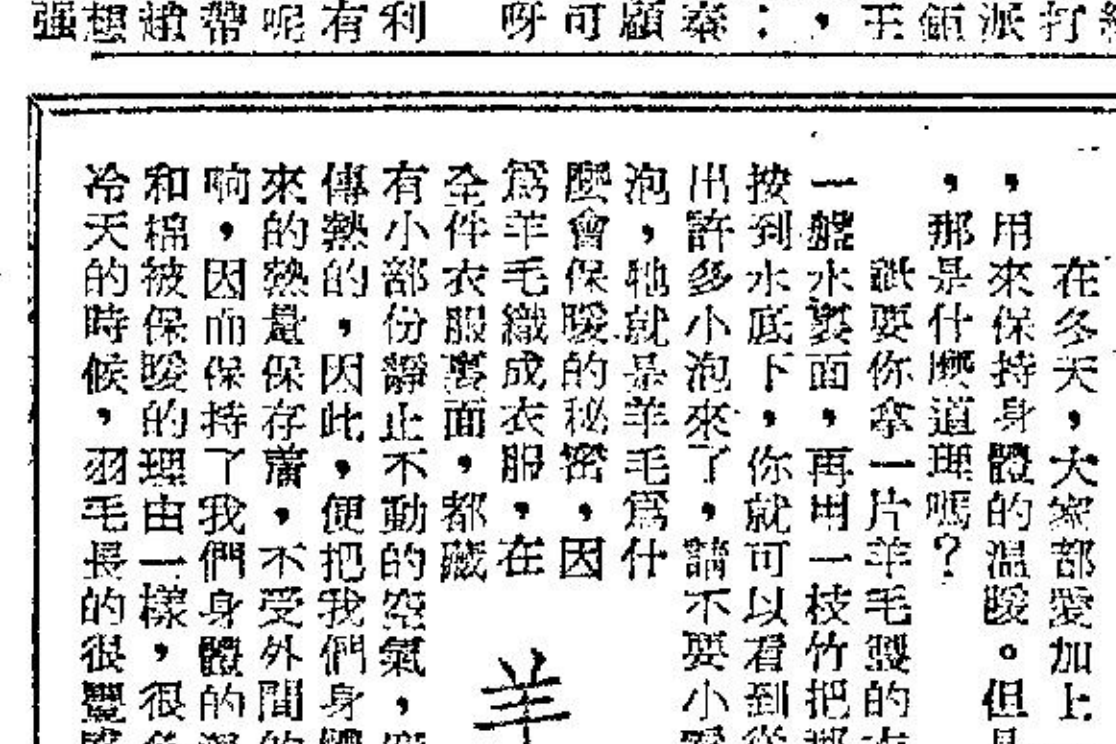 打
派
王
,
:
泰
顧
可
呀
利
有
呢
帶
想
强
在冬天,大家部愛加上
,用來保持身體的溫暖。但是
,那是什麼道理嗎?
祇要你拿一片羊毛製的衣
一盤水裏面,再用一枝竹把那
按到水底下,你就可以看到從
出許多小泡來了,請不要小
泡,牠就是羊毛爲什
麼會保暖的秘密,因
爲羊毛織成衣服,在
全件衣服裏面,都藏
羊
有小部份靜止不動的空氣,
傳熱的,因此,便把我們身體
來的熱量保存着,不受外間的
响,因而保持了我們身體的溫
和棉被保暖的理由一樣,很
冷天的時候,羽毛長的很豐